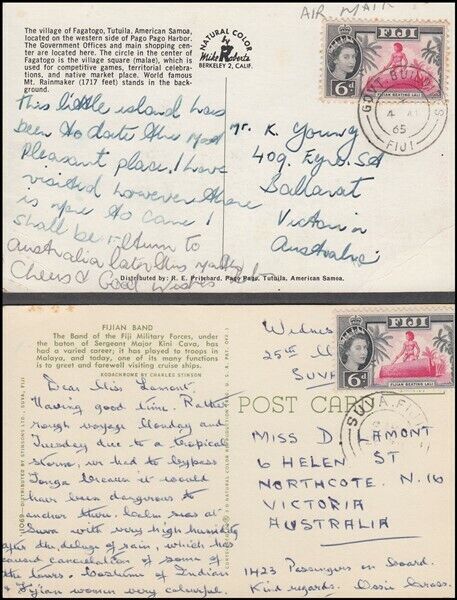 The village of Fagatogo, Tutuila, American Samoa,
located on the western side of Pago Pago Harbor.
The Government Offices and main shopping cen-
ter are located here. The circle in the center of
Fagatogo is the village square (malae), which is
used for competitive games, territorial celebra-
tions, and native market place. World famous
Mt. Rainmaker (1717 feet) stands in the back-
ground.
NATURAL COLOR
Mike Roberts
BERKELEY 2, CALIF.
AIR MAIL
FIJI
6d
FIJIAN BEATING LALI
GOVT. BUILD
65
FIJI
This little island has
been to date the most
Pleasant place I have
visited however there
is more to come I
shall be return to
Australia later this
Cheers & Good Wishes
Mr. K. Young
409 Eyre St
Ballarat
Victoria
Australia
Distributed by: R. E. Pritchard, Pago Pago, Tutuila, American Samoa.
FIJIAN BAND
The Band of the Fiji Military Forces, under
the baton of Sergeant Major Kini Cava, has
had a varied career; it has played to troops in
Malaya, and today, one of its many functions
is to greet and farewell visiting cruise ships.
KODACHROME BY CHARLES STINSON
Dear Miss Lamont.
Having good time. Rather
rough voyage Monday and
Tuesday due to a tropical
storm, we had to bypass
Tonga because it would
have been dangerous to
anchor there. Calm seas at
Suva with very high humidity
after the deluge of rain, which has
caused cancellation of some of
the tours. Costumes of Indian
& Fijian women very colourful.
1069
Wednes
25th
SUVA
FIJI
6d
FIJIAN BEATING LALI
SUVA, FIJI
POST CARD
MISS D. LAMONT
6 HELEN ST
NORTHCOTE. N.16
VICTORIA
AUSTRALIA
1423 Passengers on board.
Kind regards. Ossie